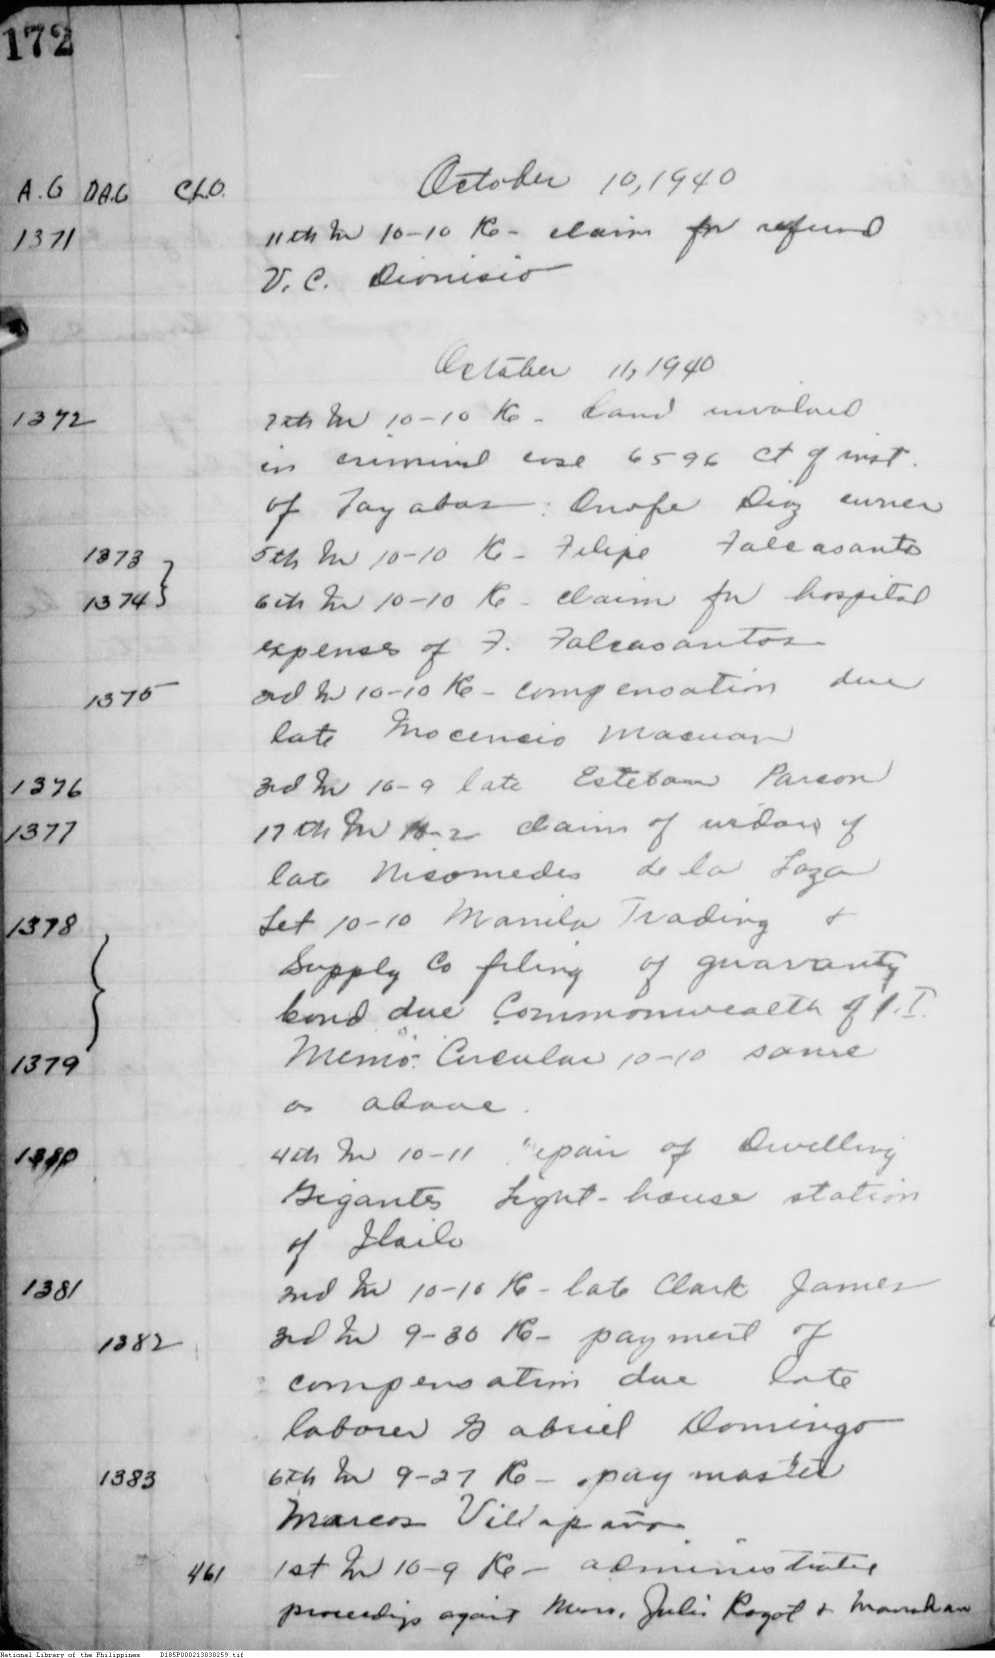 172
A.G DAG C.L.O.
October 10, 1940
1371 11th In 10-10 Re- claim for refund
V. C. Dionisio
October 11, 1940
1372 7th In 10-10 Re- Land involved
in criminal case 6596 Ct of inst.
of Tayabas: Onofre Diaz owner
1373 5th In 10-10 Re- Felipe Falcasantos
1374 6th In 10-10 Re- claim for hospital
expenses of F. Falcasantos
1375 3rd In 10-10 Re- compensation due
late Inocencio Macuan
1376 3rd In 10-9 late Esteban Parcon
1377 17th In claim of widow of
late Nicomedes de la
1378 Let 10-10 Manila Trading &
Supply Co filing of guaranty
bond due Commonwealth of P.I.
1379 Memo. Circular 10-10 same
as above.
1380 4th In 10-11 repair of Dwelling
Gigantes Light-house station
of Iloilo
1381 2nd In 10-10 Re- late Clark James
1382 3rd In 9-30 Re- payment of
compensation due late
laborer Gabriel Domingo
1383 6th In 9-27 Re- paymaster
Marcos Villapaña
461 1st In 10-9 Re- administrative
proceedings against Messrs. Julio &
National Library of the Philippines D185P000213038259.tif